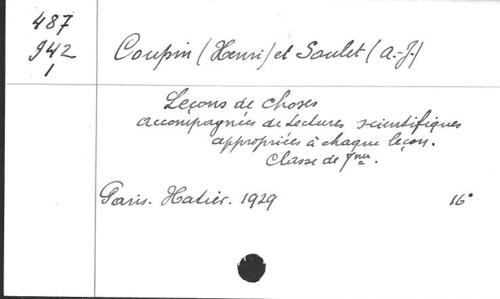 487
942
1
Coupin (Henri) et Soulet (A.-J.)
Leçons de choses
accompagnées de Lectures scientifiques
appropriées à chaque leçon.
Classe de 7me.
Paris. Hatier. 1929 16°